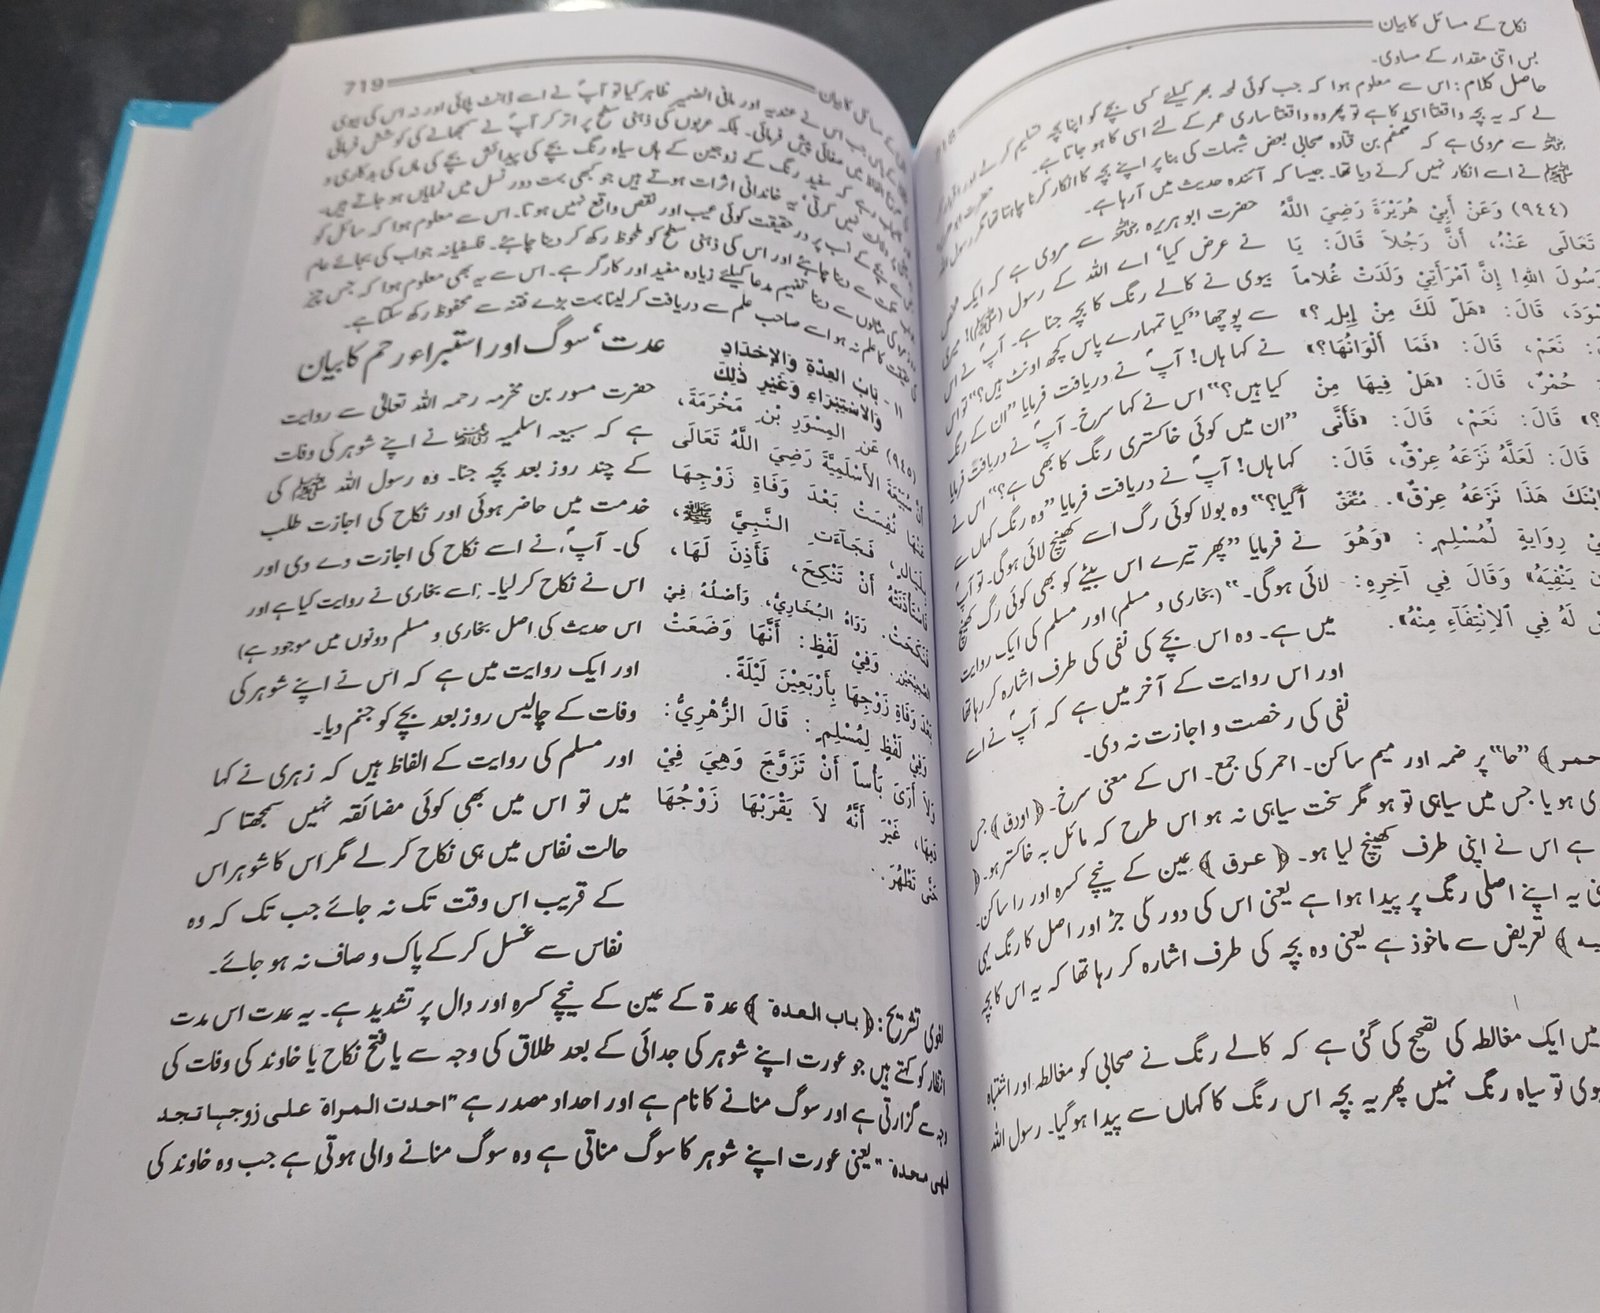 نکاح کے مسائل کا بیان
بس اتنی مقدار کے مساوی۔
حاصل کلام : اس سے معلوم ہوا کہ جب کوئی لمحہ بھر کیلئے کسی بچے کو اپنا بچہ تسلیم کر لے اور
لے کہ یہ بچہ واقعتاً اسی کا ہے تو پھر وہ واقعتاً ساری عمر کے لئے اسی کا ہو جاتا ہے۔
سے مروی ہے کہ ضمضم بن قتادہ صحابی بعض شبہات کی بنا پر اپنے بچہ کا انکار کرنا چاہتا تھا مگر رسول اللہ
ﷺ نے اسے انکار نہیں کرنے دیا تھا۔ جیسا کہ آئندہ حدیث میں آ رہا ہے۔
(٩٤٤) وَعَنْ أَبِيْ هُرَيْرَةَ رَضِيَ اللَّهُ
تَعَالَى عَنْهُ، أَنَّ رَجُلاً قَالَ: يَا
رَسُولَ اللهِ! إِنَّ امْرَأَتِيْ وَلَدَتْ غُلاَماً
قَالَ: «هَلْ لَكَ مِنْ إِبِلٍ؟»
نَعَمْ، قَالَ: «فَمَا أَلْوَانُهَا؟»
حُمْرٌ، قَالَ: «هَلْ فِيهَا مِنْ
قَالَ: نَعَمْ، قَالَ: «فَأَنَّى
قَالَ: لَعَلَّهُ نَزَعَهُ عِرْقٌ، قَالَ:
ابْنَكَ هَذَا نَزَعَهُ عِرْقٌ». مُتَّفَقٌ
رِوَايَةٍ لِّمُسْلِمٍ: «وَهُوَ
يَنْفِيَهُ» وَقَالَ فِي آخِرِهِ:
لَهُ فِي الاِنْتِفَآءِ مِنْهُ».
حضرت ابو ہریرہ سے مروی ہے کہ ایک شخص
نے عرض کیا' اے اللہ کے رسول (ﷺ)! میری
بیوی نے کالے رنگ کا بچہ جنا ہے۔ آپؐ نے اس
سے پوچھا "کیا تمہارے پاس کچھ اونٹ ہیں؟" تو اس
نے کہا ہاں! آپؐ نے دریافت فرمایا "ان کے رنگ
کیا ہیں؟" اس نے کہا سرخ۔ آپؐ نے دریافت فرمایا
"ان میں کوئی خاکستری رنگ کا بھی ہے؟" اس نے
کہا ہاں! آپؐ نے دریافت فرمایا "وہ رنگ کہاں سے
آگیا؟" وہ بولا کوئی رگ اسے کھینچ لائی ہوگی۔ تو آپؐ
نے فرمایا "پھر تیرے اس بیٹے کو بھی کوئی رگ کھینچ
لائی ہوگی۔" (بخاری و مسلم) اور مسلم کی ایک روایت
میں ہے۔ وہ اس بچے کی نفی کی طرف اشارہ کر رہا تھا
اور اس روایت کے آخر میں ہے کہ آپؐ نے اسے
نفی کی رخصت و اجازت نہ دی۔
حمر ﴾ "حا" پر ضمہ اور میم ساکن۔ احمر کی جمع۔ اس کے معنی سرخ۔ ﴿ اورق ﴾ جس
ہو یا جس میں سیاہی تو ہو مگر سخت سیاہی نہ ہو اس طرح کہ مائل بہ خاکستر ہو۔ ﴿
ہے اس نے اپنی طرف کھینچ لیا ہو۔ ﴿ عرق ﴾ عین کے نیچے کسرہ اور را ساکن۔
یہ اپنے اصلی رنگ پر پیدا ہوا ہے یعنی اس کی دور کی جڑ اور اصل کا رنگ یہی
﴾ تعریض سے ماخوذ ہے یعنی وہ بچہ کی طرف اشارہ کر رہا تھا کہ یہ اس کا بچہ
میں ایک مغالطہ کی تصحیح کی گئی ہے کہ کالے رنگ نے صحابی کو مغالطہ اور اشتباہ
تو سیاہ رنگ نہیں پھر یہ بچہ اس رنگ کا کہاں سے پیدا ہو گیا۔ رسول اللہ
کے مسائل کا بیان 719
جب اس نے عندیہ اور مافی الضمیر ظاہر کیا تو آپؐ نے اسے ڈانٹ پلائی اور نہ اس کی بیوی
میں صفائی پیش فرمائی۔ بلکہ عربوں کی ذہنی سطح پر اتر کر آپؐ نے سمجھانے کی کوشش فرمائی
کہ سفید رنگ کے زوجین کے ہاں سیاہ رنگ بچے کی پیدائش بچے کی ماں کی بدکاری و
نہیں کرتی' یہ خاندانی اثرات ہوتے ہیں جو کبھی بہت دور نسل میں نمایاں ہو جاتے ہیں۔
بچے کے نسب پر در حقیقت کوئی عیب اور نقص واقع نہیں ہوتا۔ اس سے معلوم ہوا کہ سائل کو
سے دینا چاہئے اور اس کی ذہنی سطح کو ملحوظ رکھ کر دینا چاہئے۔ فلسفیانہ جواب کی بجائے عام
مثالوں سے دینا تفہیم مدعا کیلئے زیادہ مفید اور کارگر ہے۔ اس سے یہ بھی معلوم ہوا کہ جس چیز
کا علم نہ ہو اسے صاحب علم سے دریافت کر لینا بہت بڑے فتنہ سے محفوظ رکھ سکتا ہے۔
١١ - بَابُ العِدَّةِ وَالإِحْدَادِ
وَالاسْتِبْرَاءِ وَغَيْرِ ذَلِكَ
عدت' سوگ اور استبراء رحم کا بیان
(٩٤٥) عَنِ المِسْوَرِ بْنِ مَخْرَمَةَ،
أَنَّ سُبَيْعَةَ الأَسْلَمِيَّةَ رَضِيَ اللَّهُ تَعَالَى
عَنْهَا نُفِسَتْ بَعْدَ وَفَاةِ زَوْجِهَا
بِلَيَالٍ، فَجَآءَتِ النَّبِيَّ ﷺ،
فَاسْتَأْذَنَتْهُ أَنْ تَنْكِحَ، فَأَذِنَ لَهَا،
فَنَكَحَتْ. رَوَاهُ البُخَارِيُّ، وَأَصْلُهُ فِيْ
الصَّحِيحَيْنِ. وَفِيْ لَفْظٍ: أَنَّهَا وَضَعَتْ
بَعْدَ وَفَاةِ زَوْجِهَا بِأَرْبَعِيْنَ لَيْلَةً.
وَفِيْ لَفْظٍ لِمُسْلِمٍ: قَالَ الزُّهْرِيُّ:
وَلاَ أَرَى بَأْساً أَنْ تَزَوَّجَ وَهِيَ فِيْ
دَمِهَا، غَيْرَ أَنَّهُ لاَ يَقْرَبُهَا زَوْجُهَا
حَتَّى تَطْهُرَ.
حضرت مسور بن مخرمہ رحمہ اللہ تعالیٰ سے روایت
ہے کہ سبیعہ اسلمیہ نے اپنے شوہر کی وفات
کے چند روز بعد بچہ جنا۔ وہ رسول اللہ ﷺ کی
خدمت میں حاضر ہوئی اور نکاح کی اجازت طلب
کی۔ آپؐ نے اسے نکاح کی اجازت دے دی اور
اس نے نکاح کر لیا۔ (اسے بخاری نے روایت کیا ہے اور
اس حدیث کی اصل بخاری و مسلم دونوں میں موجود ہے)
اور ایک روایت میں ہے کہ اس نے اپنے شوہر کی
وفات کے چالیس روز بعد بچے کو جنم دیا۔
اور مسلم کی روایت کے الفاظ ہیں کہ زہری نے کہا
میں تو اس میں بھی کوئی مضائقہ نہیں سمجھتا کہ
حالت نفاس میں ہی نکاح کر لے مگر اس کا شوہر اس
کے قریب اس وقت تک نہ جائے جب تک کہ وہ
نفاس سے غسل کر کے پاک و صاف نہ ہو جائے۔
لغوی تشریح : ﴿ باب العدة ﴾ عدة کے عین کے نیچے کسرہ اور دال پر تشدید ہے۔ یہ عدت اس مدت
انتظار کو کہتے ہیں جو عورت اپنے شوہر کی جدائی کے بعد طلاق کی وجہ سے یا فتح نکاح یا خاوند کی وفات کی
وجہ سے گزارتی ہے اور سوگ منانے کا نام ہے اور احداد مصدر ہے "احدت المراة علی زوجہا تحد
فہی محدة" یعنی عورت اپنے شوہر کا سوگ مناتی ہے وہ سوگ منانے والی ہوتی ہے جب وہ خاوند کی